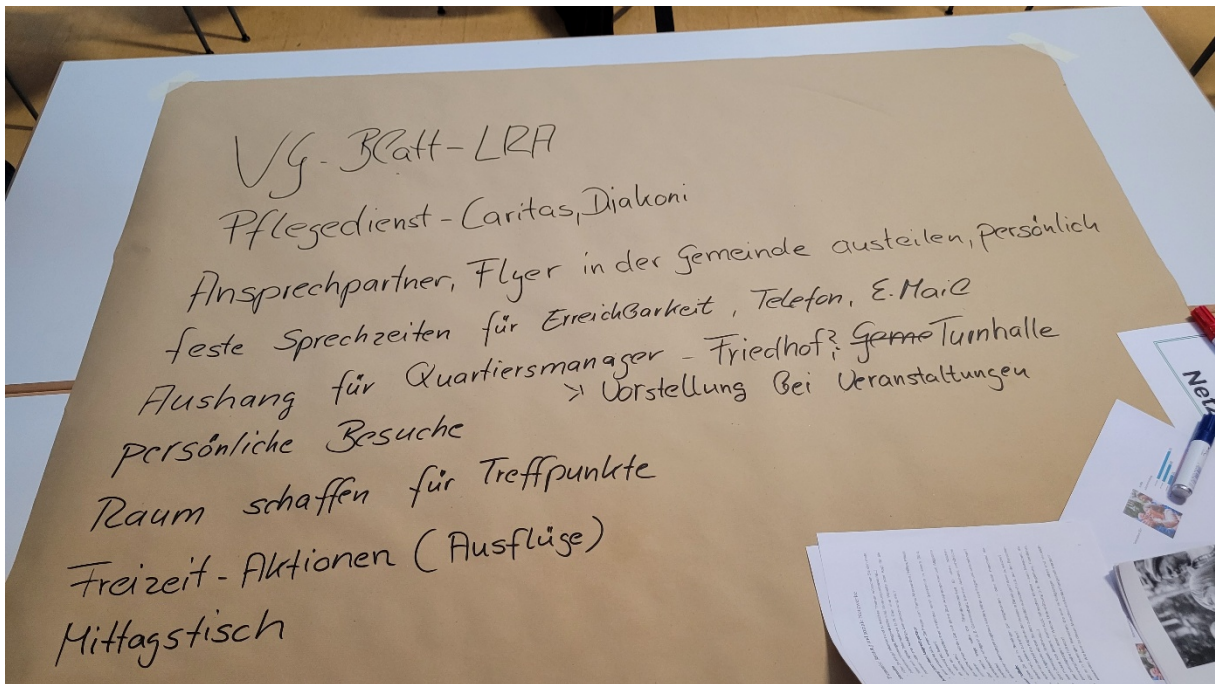 VG-Blatt-LRA
Pflegedienst-Caritas, Diakoni
Ansprechpartner, Flyer in der Gemeinde austeilen, persönlich
feste Sprechzeiten für Erreichbarkeit, Telefon, E.Mail
Aushang für Quartiersmanager - Friedhof? Geme Turnhalle
> Vorstellung bei Veranstaltungen
persönliche Besuche
Raum schaffen für Treffpunkte
Freizeit-Aktionen (Ausflüge)
Mittagstisch
Netz